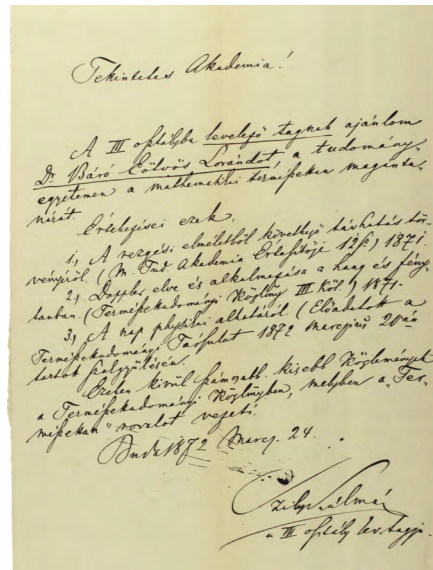 Tekintetes Akademia!
A III osztályba levelező tagnak ajánlom
Dr. Báró Eötvös Lorándot, a tudomány-
egyetemen a mathematikai természettan magánta-
nárát.
Értekezései ezek:
1, A rezgési elméletből következő távhatás tör-
vényéről. (M. Tud. Akademia Értesítője 12 sz.) 1871
2, Doppler elve és alkalmazása a hang és fény-
tanban. (Természettudományi Közlöny III Köt.) 1871.
3, A nap physikai alkatáról. (Előadatott a
Természettudományi Társulat 1872 marczius 20án
tartott szakgyűlésén.
Ezeken kivül számosabb kisebb Közleményet
a Természettudományi Közlönyben, melyben a „Ter-
mészettan" rovatot vezeti.
Buda 1872 Marcz. 24.
Szily Kálmán
a III osztály lev. tagja.